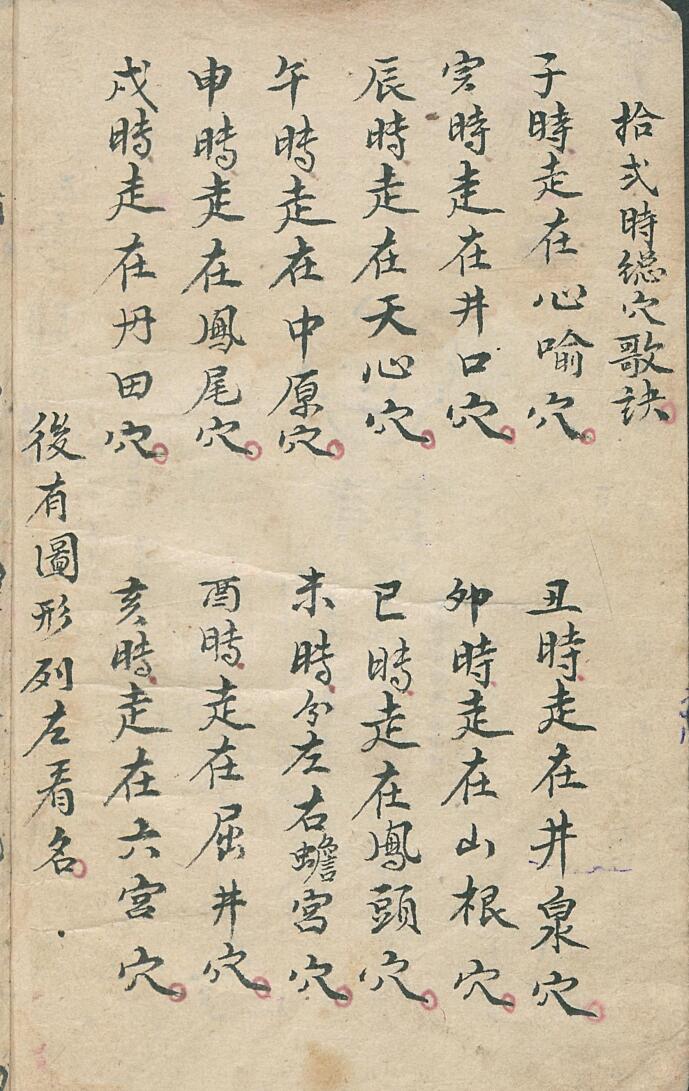 拾弍時總穴歌訣。
子時走在心喻穴。
丑時走在井泉穴。
寅時走在井口穴。
卯時走在山根穴。
辰時走在天心穴。
巳時走在鳳頭穴。
午時走在中原穴。
未時分左右蟾宮穴。
申時走在鳳尾穴。
酉時走在屈井穴。
戌時走在丹田穴。
亥時走在六宮穴。
後有圖形列左看名。